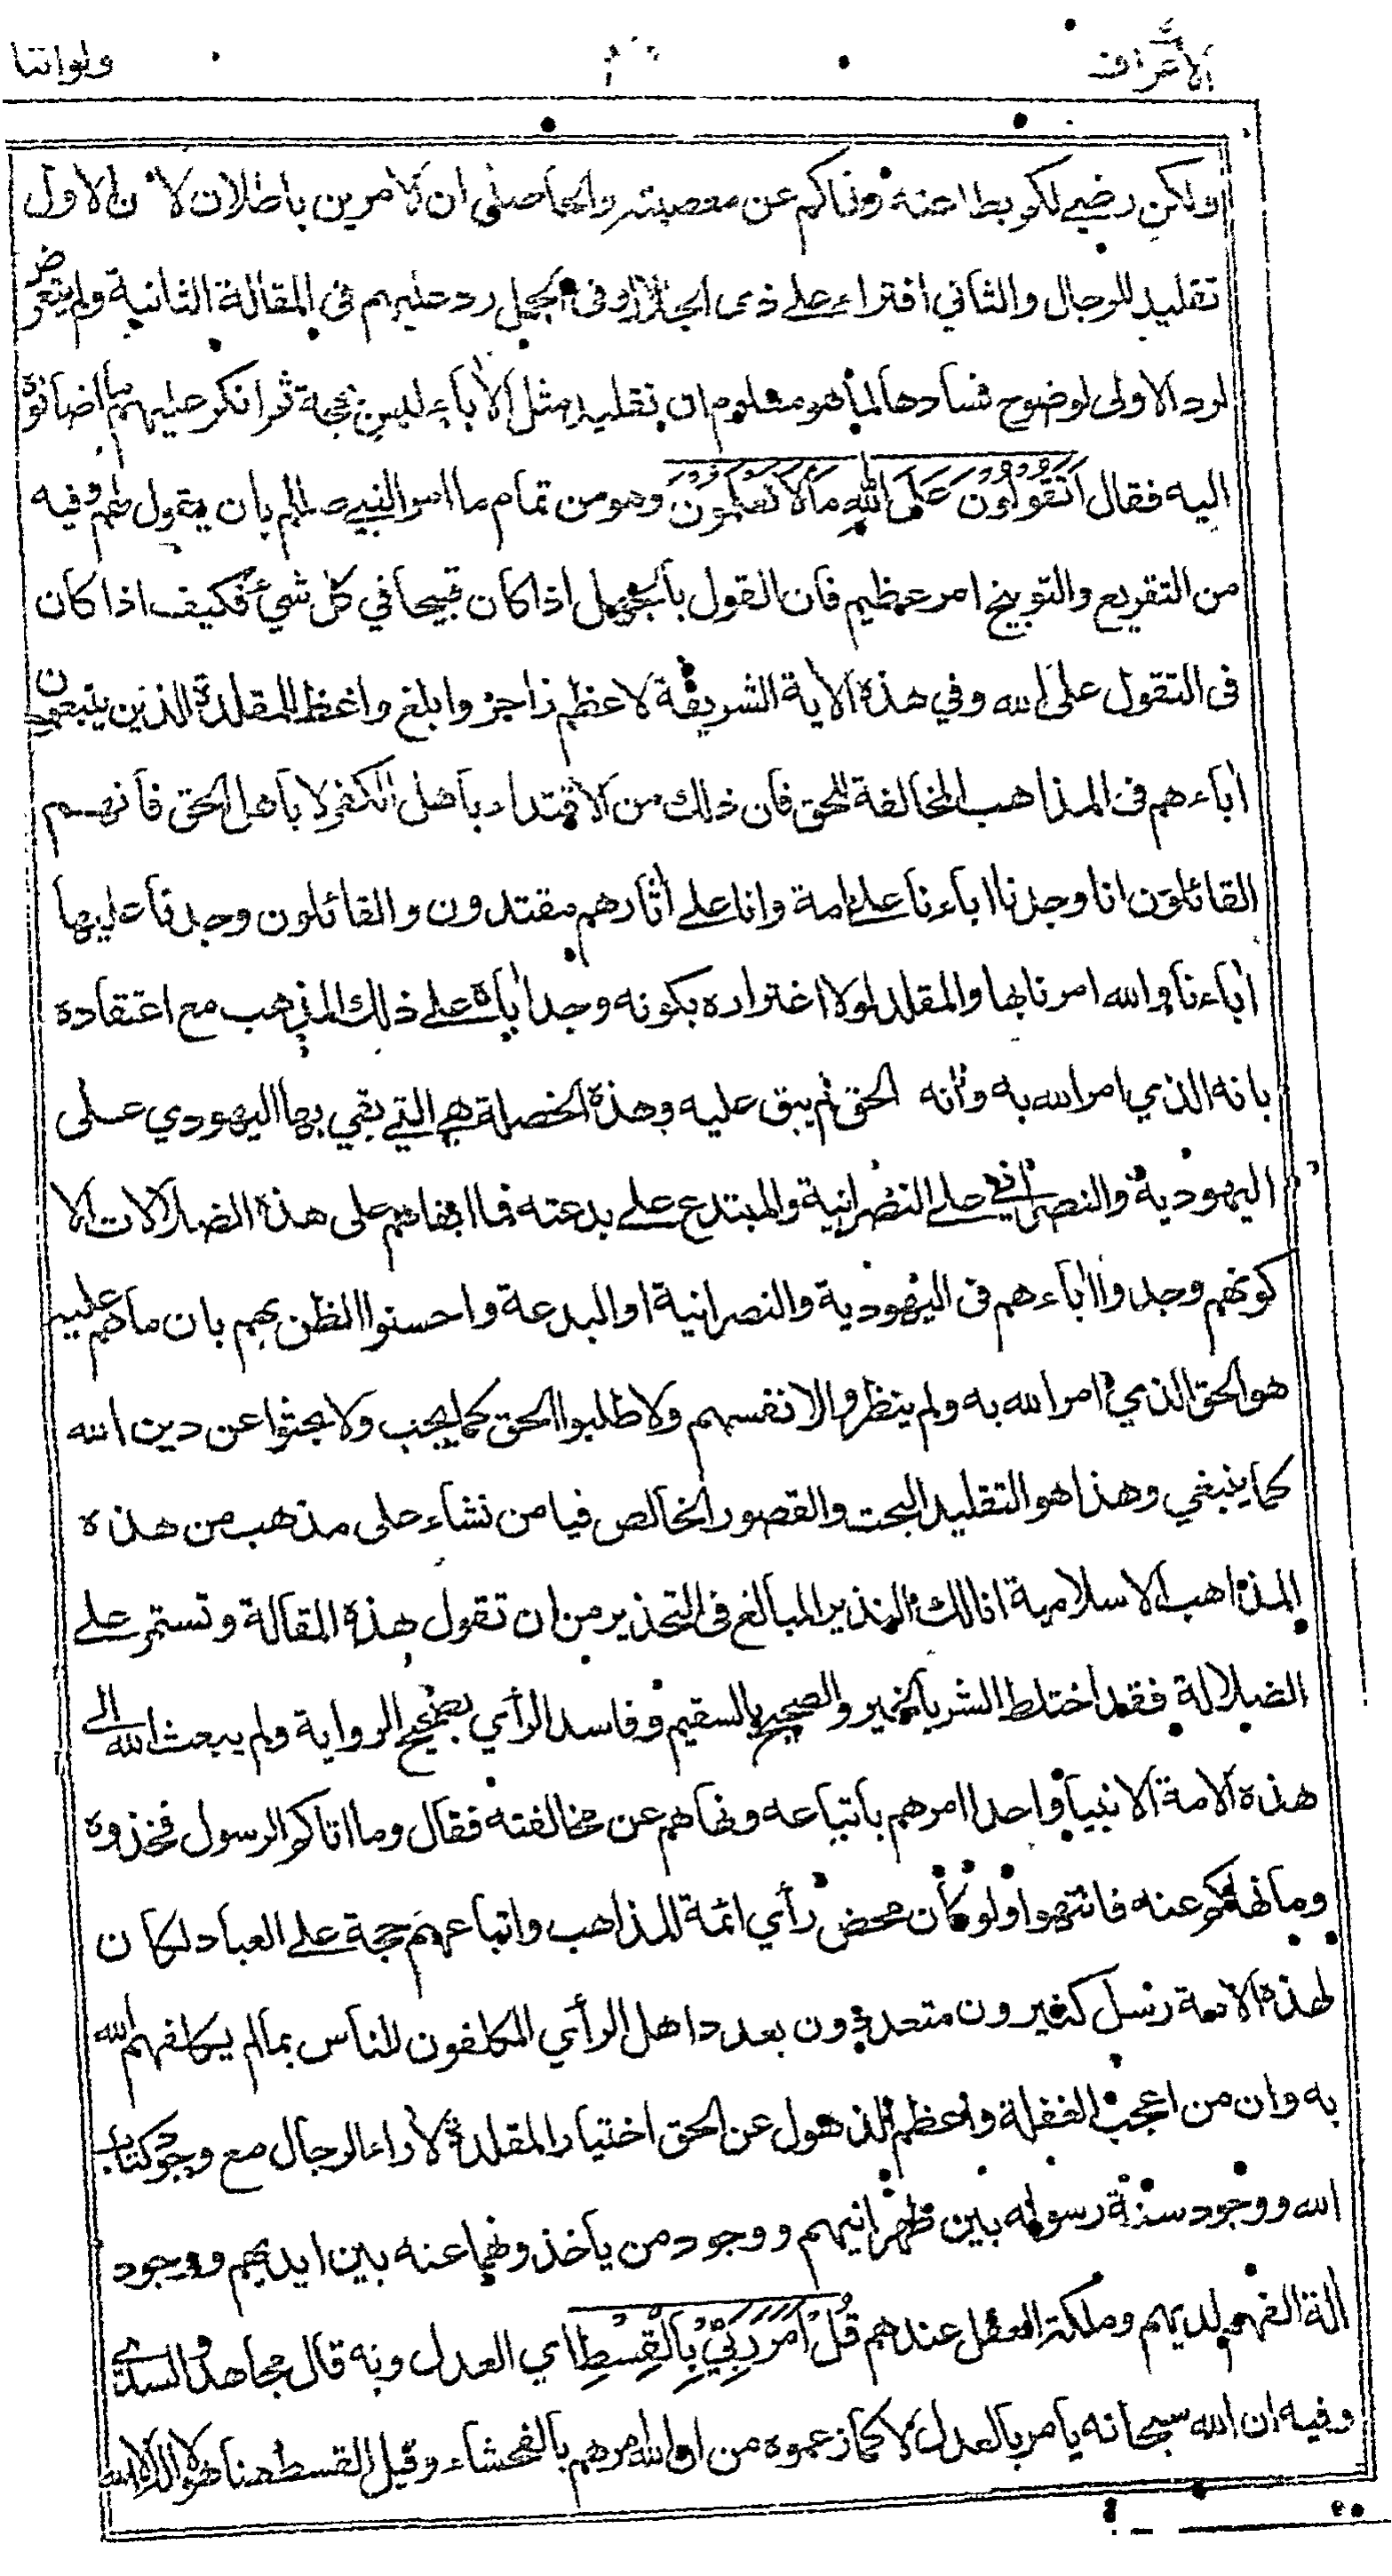 الأعراف ولواننا
ولكن رضي لكم بطاعته ونهاكم عن معصيته والحاصل ان الامرين باطلان لان الاول
تقليد للرجال والثاني افتراء على ذى الجلال وفى الجمل رد عليهم فى المقالة الثانية ولم يتعرض
لرد الاولى لوضوح فسادها لما هو معلوم ان تقليد مثل الآباء ليس بحجة ثم انكر عليهم ما اضافوه
اليه فقال اَتَقُوْلُوْنَ عَلَى اللّٰهِ مَا لَا تَعْلَمُوْنَ وهو من تمام ما امر النبي صللم بان يقول لهم وفيه
من التقريع والتوبيخ امر عظيم فان القول بالجهل اذا كان قبيحا في كل شيء فكيف اذا كان
فى التقول على الله وفي هذه الآية الشريفة لاعظم زاجز وابلغ واعظ للمقلدة الذين يتبعون
اٰباءهم فى المذاهب المخالفة للحق فان ذلك من الاقتداء باهل الكفر لا باهل الحق فانهم
القائلون انا وجدنا اباءنا على امة وانا على اٰثارهم مقتدون والقائلون وجدنا عليها
اٰباءنا والله امرنا بها والمقلد لولا اغتراره بكونه وجد اٰباه على ذلك المذهب مع اعتقاده
بانه الذي امر الله به وانه الحق لم يبق عليه وهذه الخصلة هي التي بقي بها اليهودي على
اليهودية والنصراني على النصرانية والمبتدع على بدعته فما ابقاهم على هذه الضلالات الا
كونهم وجدوا اٰباءهم فى اليهودية والنصرانية او البدعة واحسنوا الظن بهم بان ما هم عليه
هو الحق الذي امر الله به ولم ينظروا لانفسهم ولا طلبوا الحق كما يجب ولا بحثوا عن دين الله
كما ينبغي وهذا هو التقليد البحت والقصور الخالص فيا من نشاء على مذهب من هذه
المذاهب الاسلامية انا لك النذير المبالغ فى التحذير من ان تقول هذه المقالة وتستمر على
الضلالة فقد اختلط الشر بالخير والصحيح بالسقيم وفاسد الرأي بصحيح الرواية ولم يبعث الله الى
هذه الامة الا نبيا واحدا امرهم باتباعه ونهاهم عن مخالفته فقال وما اتاكم الرسول فخذوه
وما نهاكم عنه فانتهوا ولو كان محض رأي ائمة المذاهب واتباعهم حجة على العباد لكان
لهذه الامة رسل كثيرون متعددون بعدد اهل الرأي المكلفون للناس بما لم يكلفهم الله
به وان من اعجب الغفلة واعظم الذهول عن الحق اختيار المقلدة لآراء الرجال مع وجود كتاب
الله ووجود سنة رسوله بين ظهرانيهم ووجود من يأخذونهما عنه بين ايديهم ووجود
اٰلة الفهم لديهم وملكة العقل عندهم قُلْ اَمَرَ رَبِّيْ بِالْقِسْطِ اي العدل وبه قال مجاهد والسدي
وفيه ان الله سبحانه يامر بالعدل لا كما زعموه من ان الله امرهم بالفحشاء وقيل القسط هنا هو لا اله الا الله